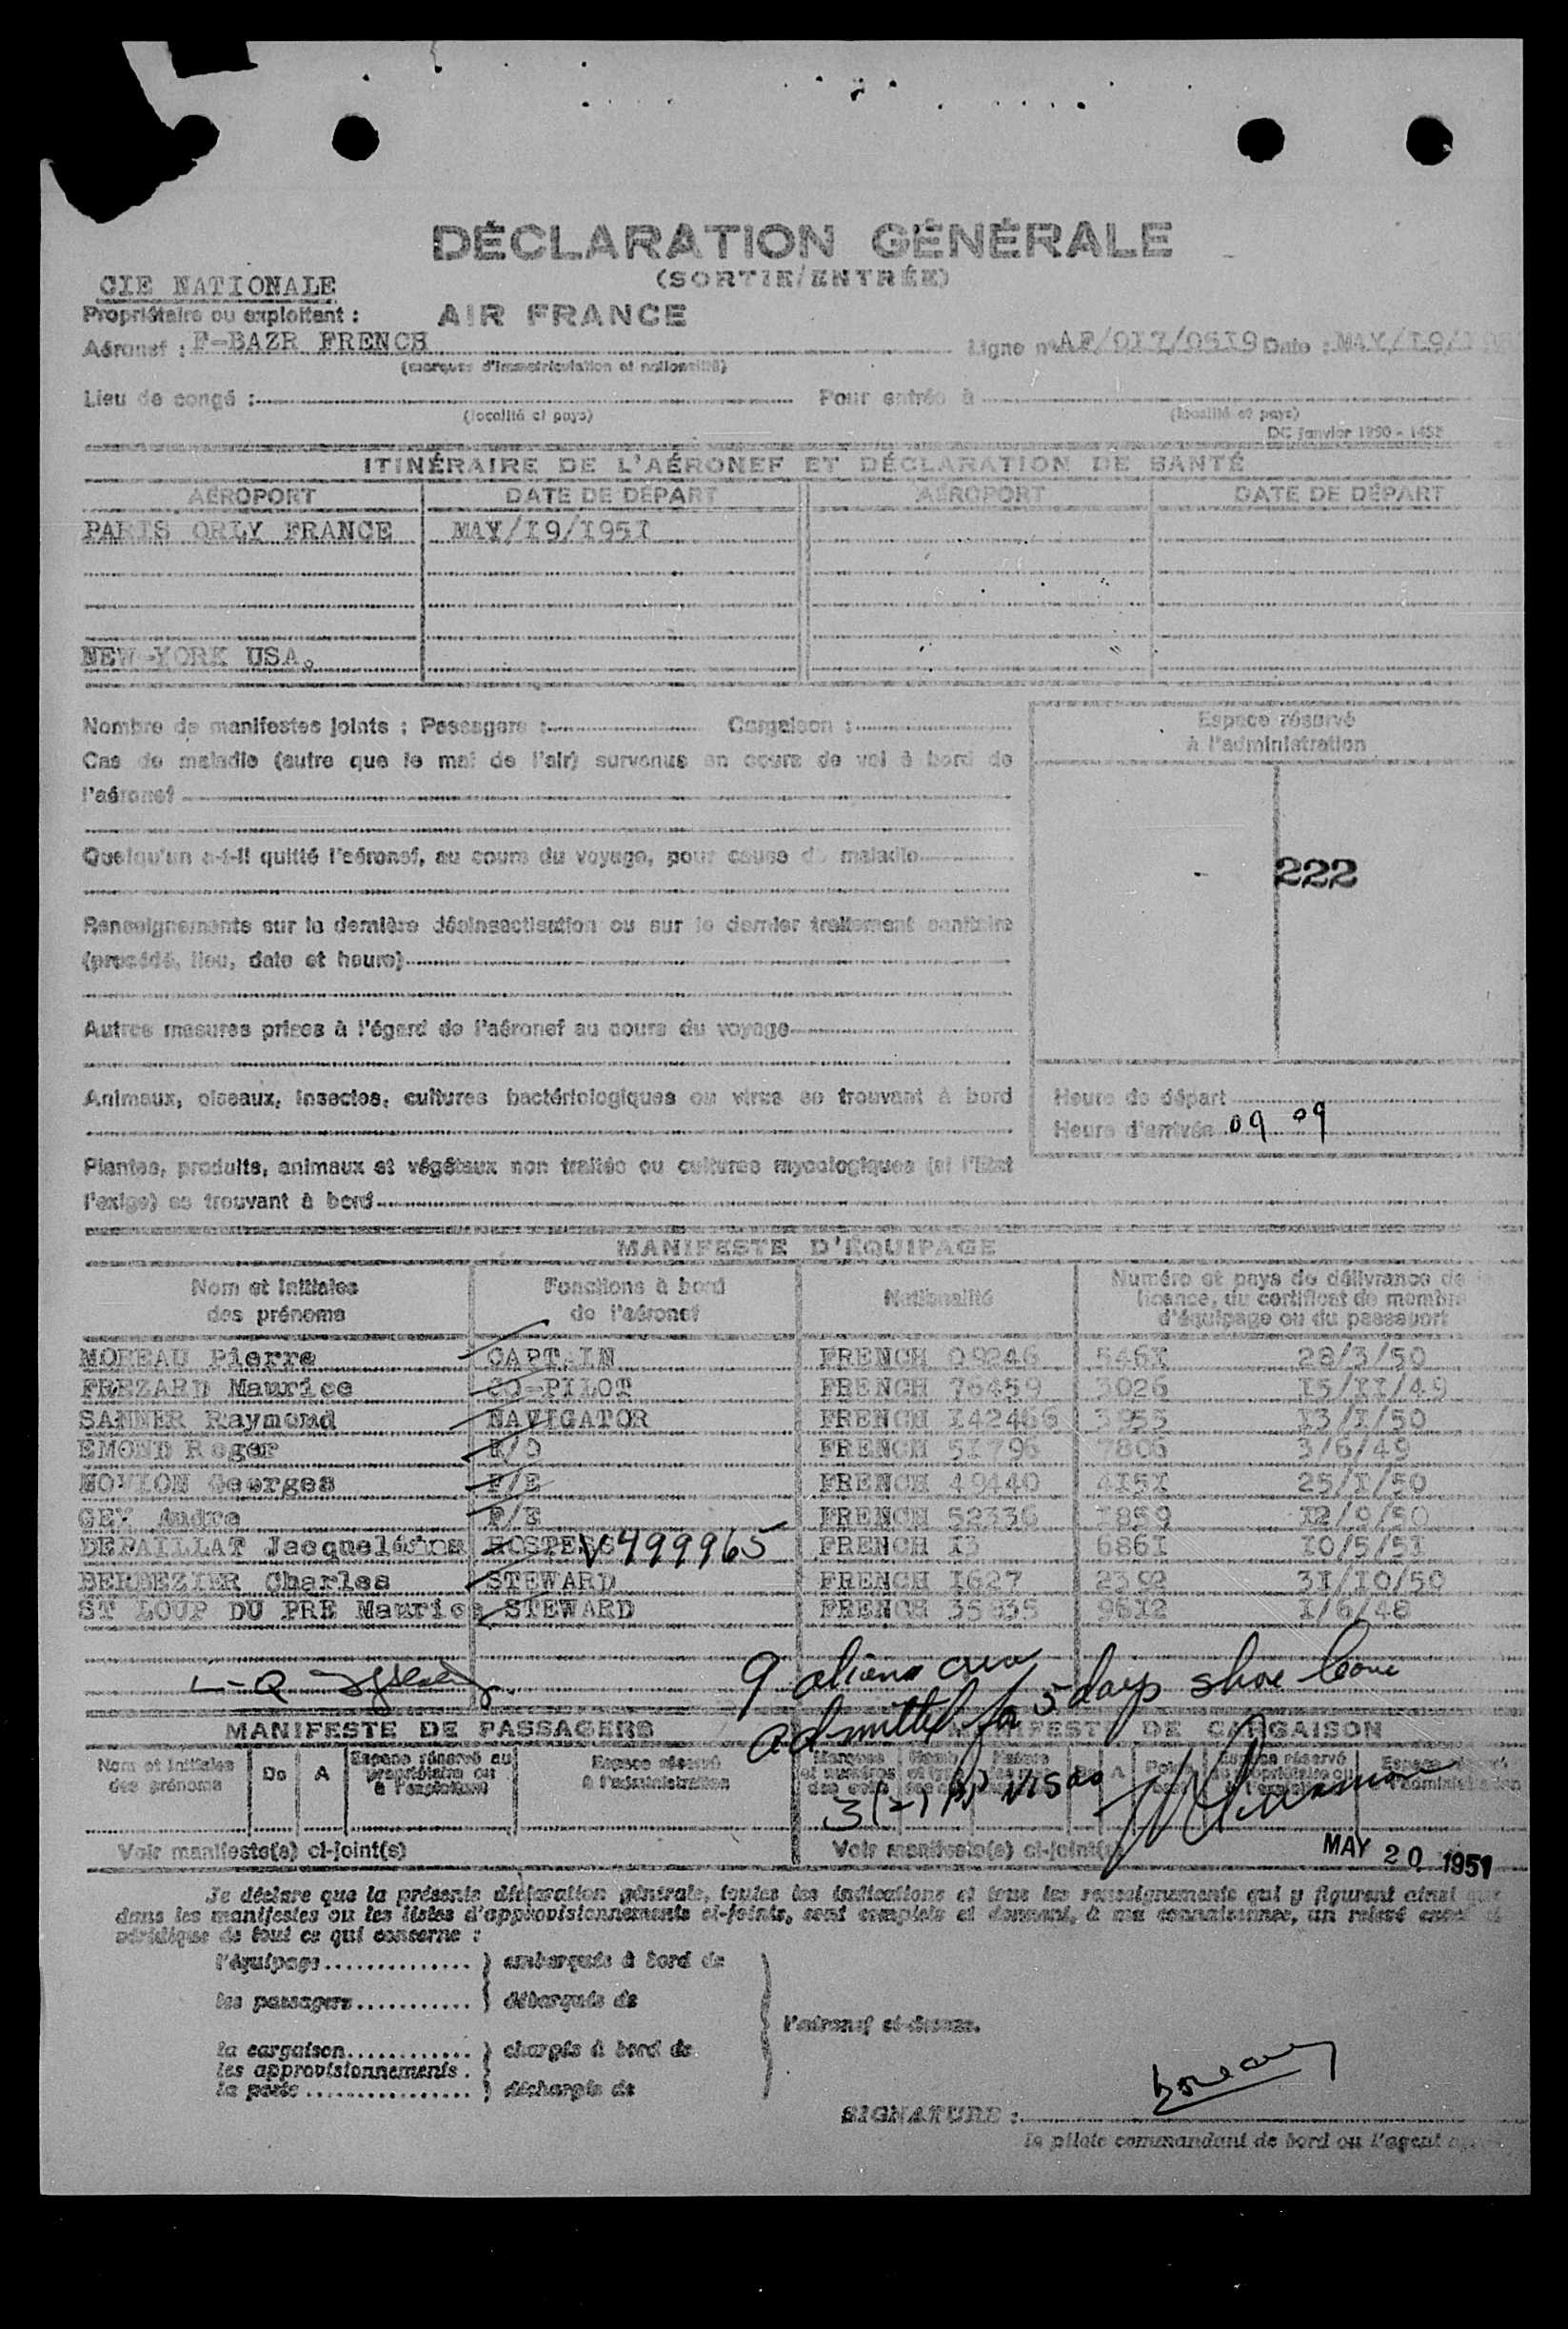 DÉCLARATION GÉNÉRALE
(SORTIE/ENTRÉE)
CIE NATIONALE
Propriétaire ou exploitant : AIR FRANCE
Aéronef : F-BAZR FRENCH Ligne n° AF/017/0519 Date : MAY/I9/
(marques d'immatriculation et nationalité)
Lieu de congé : Pour entrée à
(localité et pays) (localité et pays)
DC janvier 1950 - 1452
ITINÉRAIRE DE L'AÉRONEF ET DÉCLARATION DE SANTÉ
AÉROPORT DATE DE DÉPART AÉROPORT DATE DE DÉPART
PARIS ORLY FRANCE MAY/I9/I95I
NEW-YORK USA.
Nombre de manifestes joints : Passagers : Cargaison :
Espace réservé
à l'administration
Cas de maladie (autre que le mal de l'air) survenus en cours de vol à bord de
l'aéronef
Quelqu'un a-t-il quitté l'aéronef, au cours du voyage, pour cause de maladie
222
Renseignements sur la dernière désinsectisation ou sur le dernier traitement sanitaire
(procédé, lieu, date et heure)
Autres mesures prises à l'égard de l'aéronef au cours du voyage
Animaux, oiseaux, insectes, cultures bactériologiques ou virus se trouvant à bord
Heure de départ
Heure d'arrivée 09 09
Plantes, produits, animaux et végétaux non traités ou cultures mycologiques (si l'Etat
l'exige) se trouvant à bord
MANIFESTE D'ÉQUIPAGE
Nom et initiales des prénoms Fonctions à bord de l'aéronef Nationalité Numéro et pays de délivrance de la licence, du certificat de membre d'équipage ou du passeport
MOREAU Pierre CAPTAIN FRENCH 09246 546I 28/3/50
FREZARD Maurice CO-PILOT FRENCH 76459 3026 I5/II/49
SANNER Raymond NAVIGATOR FRENCH I42466 3955 I3/I/50
EMOND Roger R/O FRENCH 5I796 7806 3/6/49
NOVION Georges F/E FRENCH 49440 4I5I 25/I/50
GEY Andre F/E FRENCH 52336 I859 I2/9/50
DEPAILLAT Jacqueleine HOSTESS V499965 FRENCH I3 686I I0/5/5I
BERBEZIER Charles STEWARD FRENCH I627 2392 3I/I0/50
ST LOUP DU PRE Maurice STEWARD FRENCH 35835 96I2 I/6/48
9 aliens crew
admitted for 5 days shore leave
MANIFESTE DE PASSAGERS MANIFESTE DE CARGAISON
Nom et initiales des prénoms De A Espace réservé au propriétaire ou à l'exploitant Espace réservé à l'administration
3(2) PP Visas
Voir manifeste(s) ci-joint(s) Voir manifeste(s) ci-joint(s)
MAY 20 1951
Je déclare que la présente déclaration générale, toutes les indications et tous les renseignements qui y figurent ainsi que
dans les manifestes ou les listes d'approvisionnements ci-joints, sont complets et donnent, à ma connaissance, un relevé exact et
véridique de tout ce qui concerne :
l'équipage } embarqués à bord de
les passagers } débarqués de
l'aéronef ci-dessus.
la cargaison } chargés à bord de
les approvisionnements
la poste } déchargés de
SIGNATURE :
le pilote commandant de bord ou l'agent